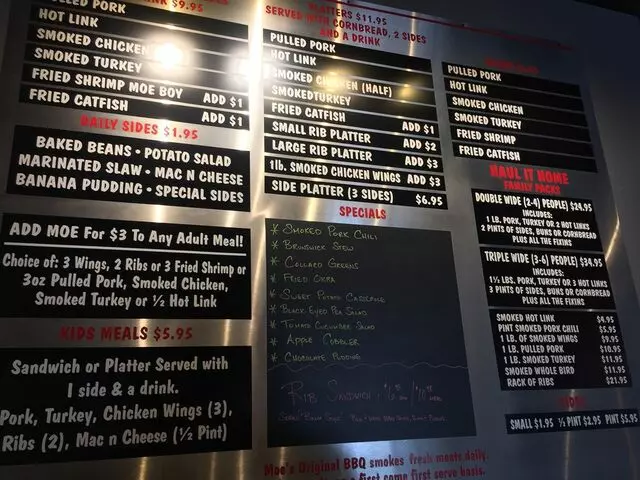 PULLED PORK
$9.95
HOT LINK
SMOKED CHICKEN
SMOKED TURKEY
FRIED SHRIMP MOE BOY ADD $1
FRIED CATFISH ADD $1
DAILY SIDES $1.95
BAKED BEANS • POTATO SALAD
MARINATED SLAW • MAC N CHEESE
BANANA PUDDING • SPECIAL SIDES
ADD MOE For $3 To Any Adult Meal!
Choice of: 3 Wings, 2 Ribs or 3 Fried Shrimp or
3oz Pulled Pork, Smoked Chicken,
Smoked Turkey or ½ Hot Link
KIDS MEALS $5.95
Sandwich or Platter Served with
1 side & a drink.
Pork, Turkey, Chicken Wings (3),
Ribs (2), Mac n Cheese (½ Pint)
PLATTERS $11.95
SERVED WITH CORNBREAD, 2 SIDES
AND A DRINK
PULLED PORK
HOT LINK
SMOKED CHICKEN (HALF)
SMOKEDTURKEY
FRIED CATFISH ADD $1
SMALL RIB PLATTER ADD $2
LARGE RIB PLATTER ADD $3
1lb. SMOKED CHICKEN WINGS ADD $3
SIDE PLATTER (3 SIDES) $6.95
SPECIALS
* SMOKED PORK CHILI
* BRUNSWICK STEW
* COLLARD GREENS
* FRIED OKRA
* SWEET POTATO CASSEROLE
* BLACK EYED PEA SALAD
* TOMATO CUCUMBER SALAD
* APPLE COBBLER
* CHOCOLATE PUDDING
RIB SANDWICH
Moe's Original BBQ smokes fresh meats daily.
first come first serve basis.
PULLED PORK
HOT LINK
SMOKED CHICKEN
SMOKED TURKEY
FRIED SHRIMP
FRIED CATFISH
HAUL IT HOME
FAMILY PACKS
DOUBLE WIDE (2-4) PEOPLE) $24.95
INCLUDES:
1 LB. PORK, TURKEY OR 2 HOT LINKS
2 PINTS OF SIDES, BUNS OR CORNBREAD
PLUS ALL THE FIXINS
TRIPLE WIDE (3-6) PEOPLE) $34.95
INCLUDES:
1½ LBS. PORK, TURKEY OR 3 HOT LINKS
3 PINTS OF SIDES, BUNS OR CORNBREAD
PLUS ALL THE FIXINS
SMOKED HOT LINK $4.95
PINT SMOKED PORK CHILI $5.95
1 LB. OF SMOKED WINGS $9.95
1 LB. PULLED PORK $10.95
1 LB. SMOKED TURKEY $11.95
SMOKED WHOLE BIRD $11.95
RACK OF RIBS $21.95
SMALL $1.95 ½ PINT $2.95 PINT $5.95